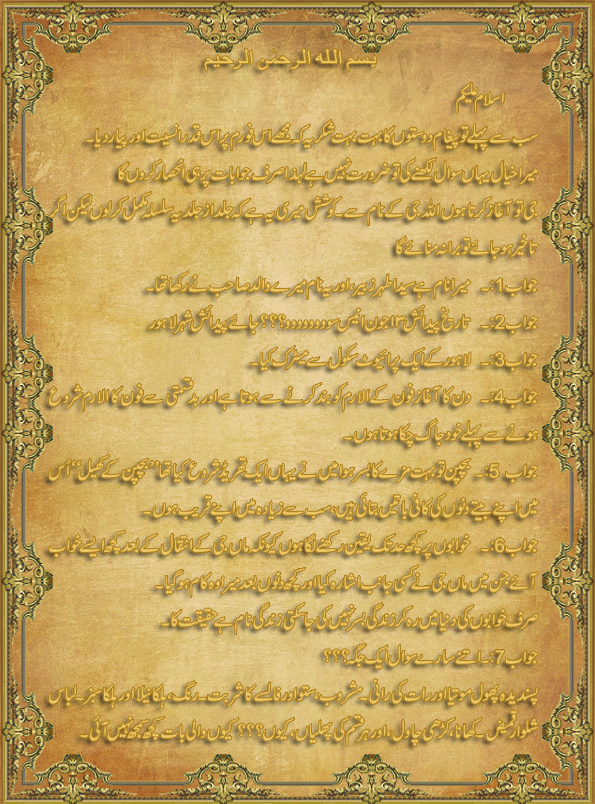 بسم الله الرحمن الرحيم
اسلام علیکم
سب سے پہلے تو پیغام دوستوں کا بہت بہت شکریہ کہ مجھے اس فورم پر اس قدر انسیت اور پیار دیا۔
میرا خیال یہاں سوال لکھنے کی تو ضرورت نہیں ہے لہذا صرف جوابات پر ہی انحصار کروں گا
جی تو آغاز کرتا ہوں اللہ جی کے نام سے۔ کوشش میری یہ ہے کہ جلد از جلد یہ سلسلہ مکمل کر لوں لیکن اگر
تاخیر ہو جائے تو برا نہ منائے گا
جواب1:۔ میرا نام ہے سید اطہر زبیر، اور یہ نام میرے والد صاحب نے رکھا تھا۔
جواب2:۔ تاریخ پیدائش ۱۳ جون انیس سوووووووو؟؟؟ جائے پیدائش شہر لاہور
جواب3:۔ لاہور کے ایک پرائیوٹ سکول سے میٹرک کیا۔
جواب4:۔ دن کا آغاز فون کے الارم کو بند کرنے سے ہوتا ہے اور بدقسمتی سے فون کا الارم شروع
ہونے سے پہلے خود جاگ چکا ہوتا ہوں۔
جواب 5:۔ بچپن تو بہت مزے کا بسر ہوا میں نے یہاں ایک تھریڈ شروع کیا تھا ’’بچپن کے کھیل‘‘ اُس
میں اپنے بیتے دنوں کی کافی باتیں بتائی ہیں، سب سے زیادہ میں اپنے قریب ہوں۔
جواب6:۔ خوابوں پر کچھ حد تک یقین رکھنے لگا ہوں کیونکہ ماں جی کے انتقال کے بعد کچھ ایسے خواب
آئے، جن میں ماں جی نے کسی جانب اشارہ کیا اور کچھ دنوں بعد میرا وہ کام ہو گیا۔
صرف خوابوں کی دنیا میں رہ کر زندگی بسر نہیں کی جا سکتی زندگی نام ہے حقیقت کا۔
جواب7:۔ اتنے سارے سوال ایک جگہ؟؟؟
پسندیدہ پھول موتیا اور رات کی رانی۔ مشروب، ستو اور فالسے کا شربت۔ رنگ، ہلکا نیلا اور ہلکا سبز۔ لباس
شلوار قمیض۔ کھانا، کڑھی چاول، اور ہر قسم کی پھلیاں، کیوں؟؟؟ کیوں والی بات کچھ سمجھ نہیں آئی۔